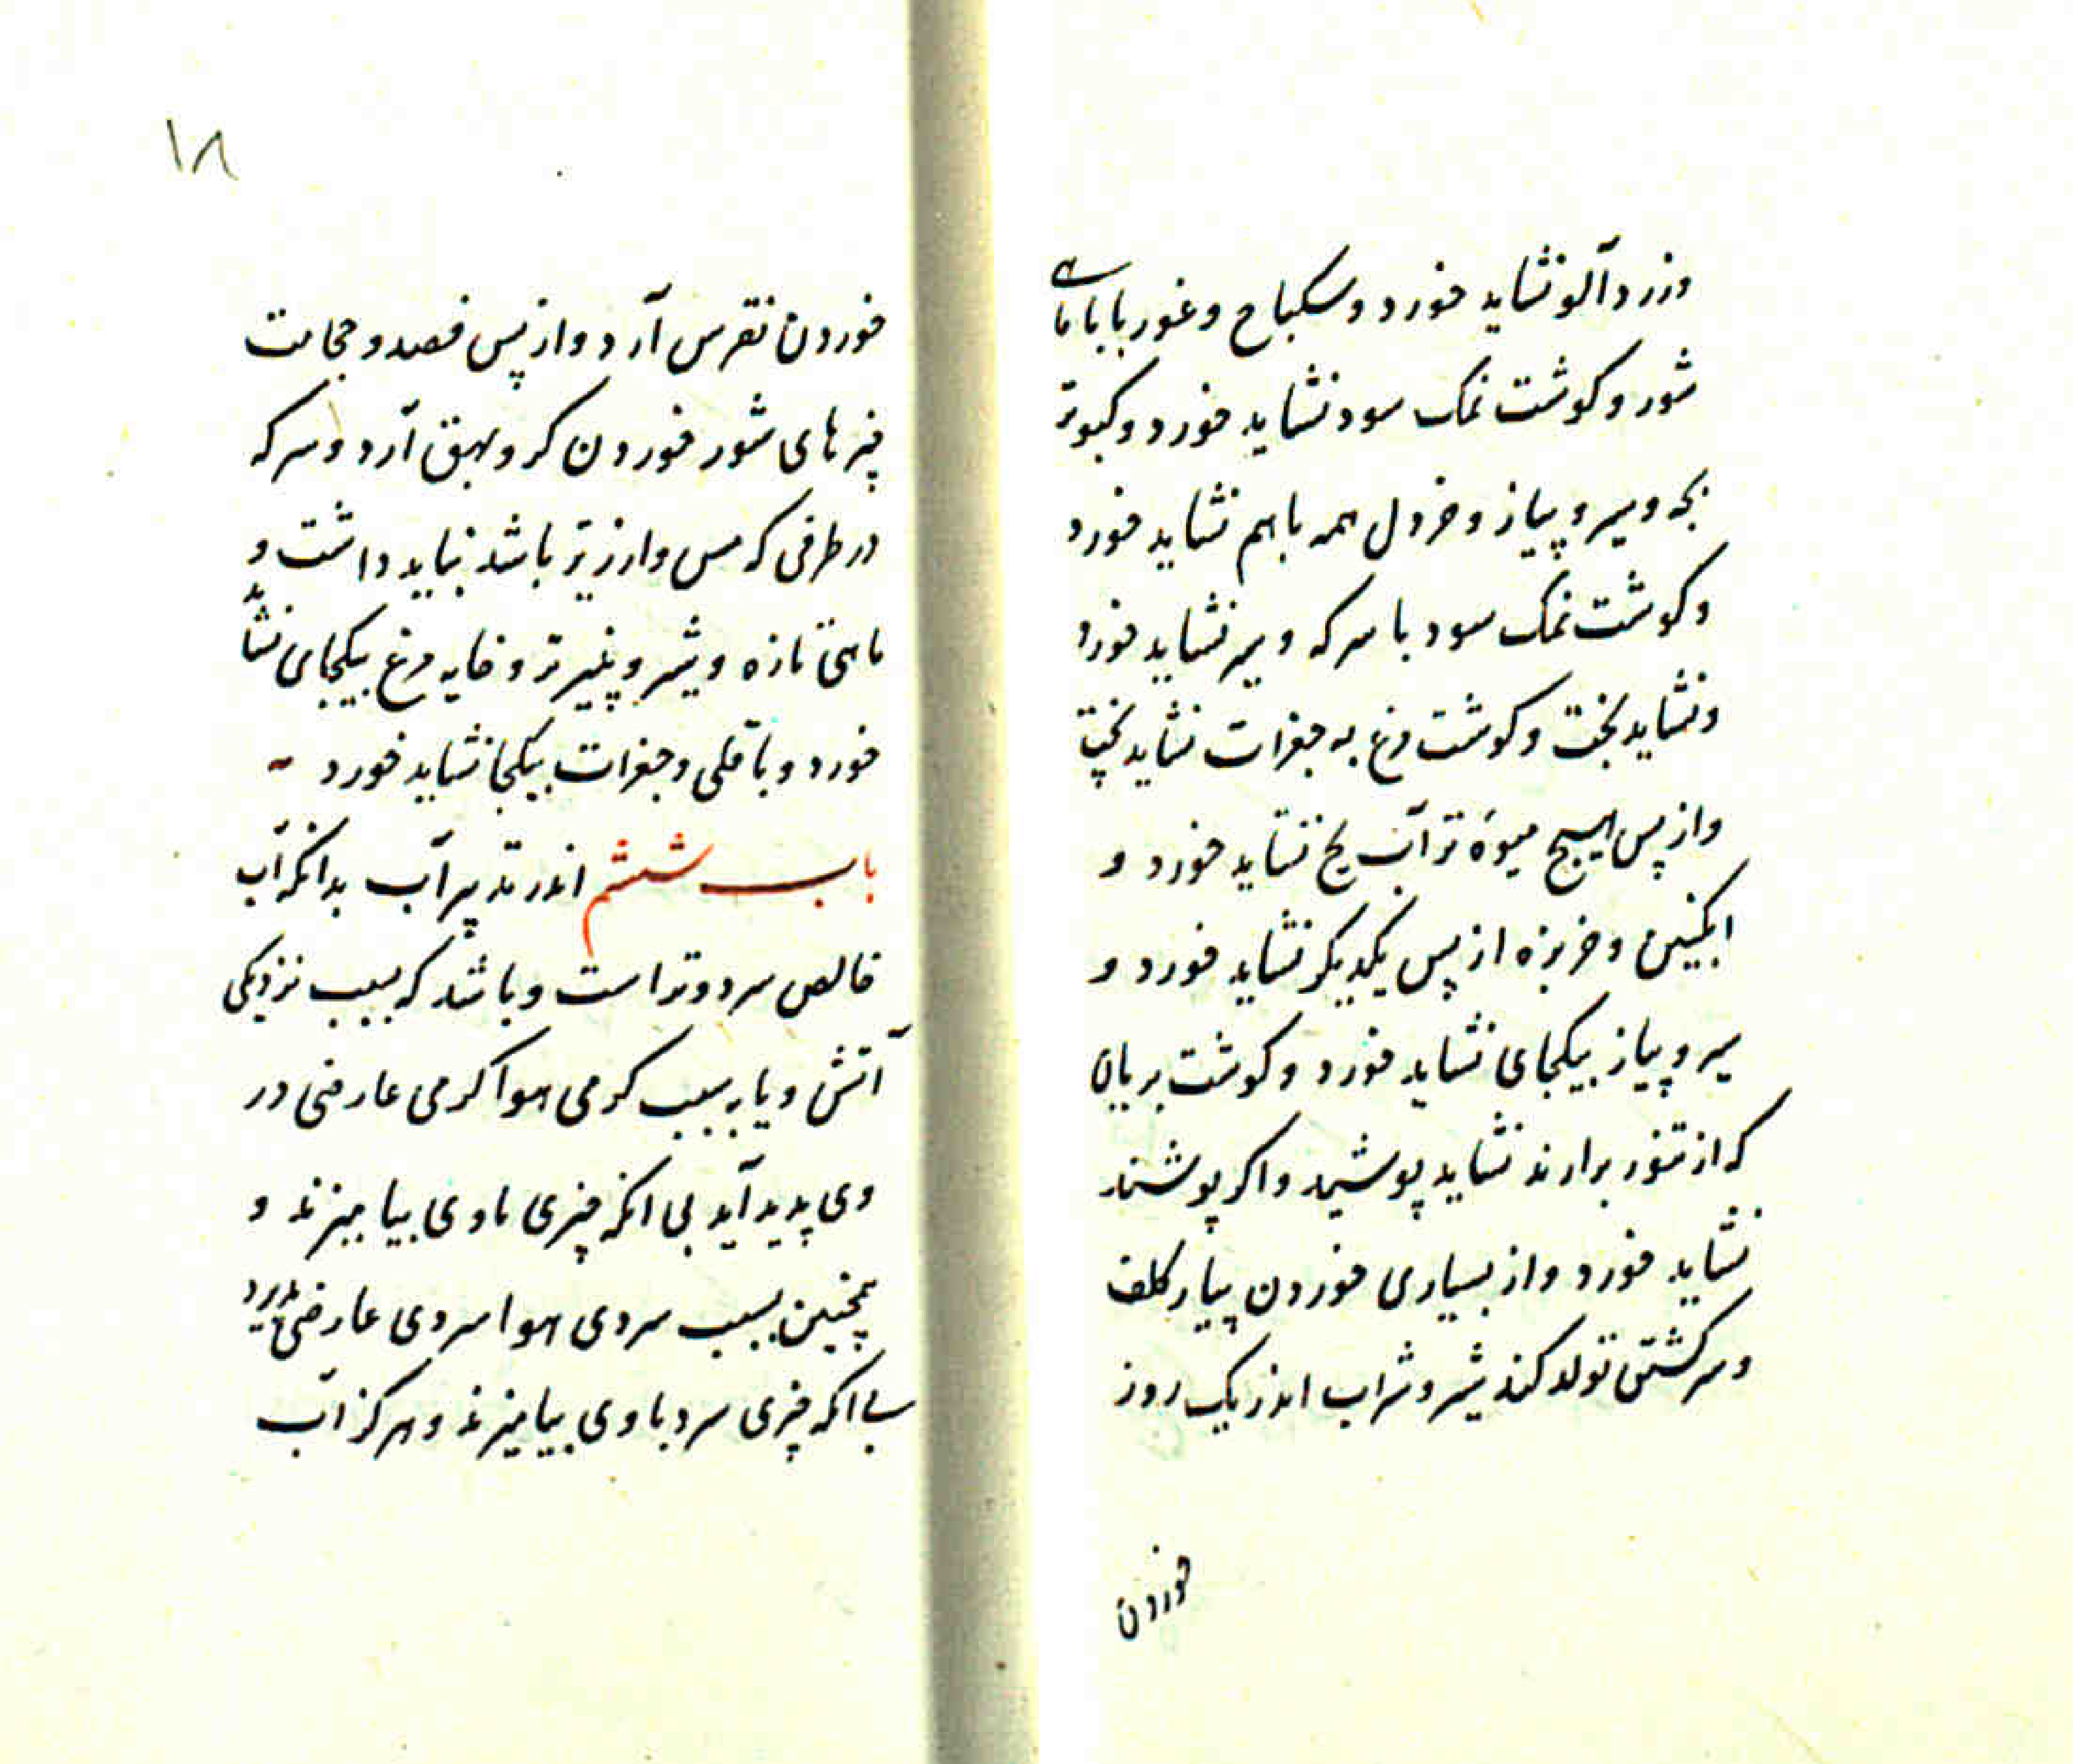 وزرد آلو نشاید خورد و سکباج و غوربا با ماهی
شور و کوشت نمک سود نشاید خورد و کبوتر
بچه و سیر و پیاز و خردل همه باهم نشاید خورد
و کوشت نمک سود با سرکه و سیر نشاید خورد
و نشاید پخت و کوشت مرغ به جغرات نشاید پخت
و از پس هیچ میوهٔ تر آب یخ نشاید خورد و
انکبین و خربزه از پس یکدیکر نشاید خورد و
سیر و پیاز بیکجای نشاید خورد و کوشت بریان
که از تنور برارند نشاید پوشید و اکر پوشند
نشاید خورد و از بسیاری خوردن پیاز کلف
و سرکشتی تولد کند شیر و شراب اندر یک روز
خوردن
۱۸
خوردن نقرس آرد و از پس فصد و حجامت
چیزهای شور خوردن کر و بهق آرد و سرکه
در ظرفی که مس و ارزیز باشد نباید داشت و
ماهی تازه و شیر و پنیر تر و خایه مرغ بیکجای نشاید
خورد و باقلی و جغرات بیکجا نشاید خورد
باب ششم اندر تدبیر آب بدانکه آب
خالص سرد و تر است و باشد که بسبب نزدیکی
آتش و یا به سبب کرمی هوا کرمی عارضی در
وی پدید آید بی انکه چیزی باوی بیامیزند و
همچنین بسبب سردی هوا سردی عارضی پذیرد
بی انکه چیزی سرد باوی بیامیزند و هرکز آب